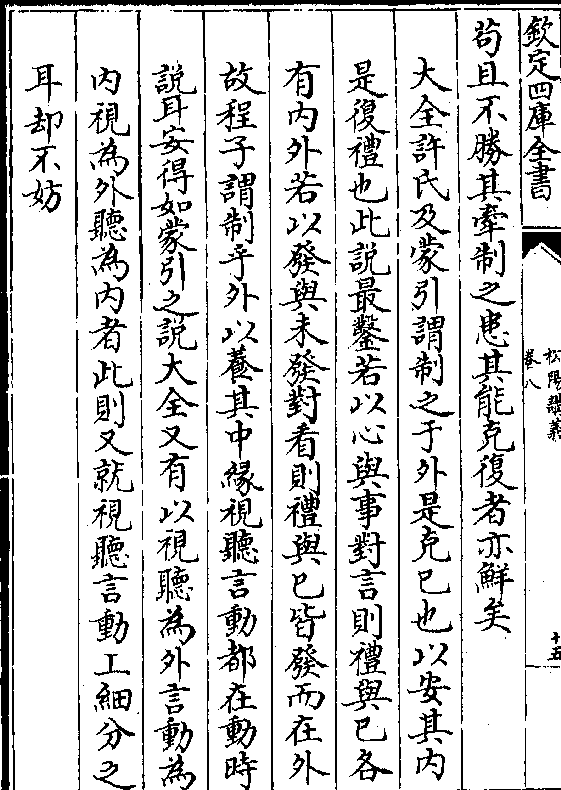 欽定四庫全書
松陽講義
卷八
十五
苟且不勝其牽制之患其能克復者亦鮮矣
大全許氏及蒙引謂制之于外是克已也以安其内
是復禮也此説最鑿若以心與事對言則禮與已各
有内外若以發與未發對看則禮與已皆發而在外
故程子謂制乎外以養其中緣視聽言動都在動時
説耳安得如蒙引之説大全又有以視聽為外言動為
内視為外聽為内者此則又就視聽言動工細分之
耳却不妨